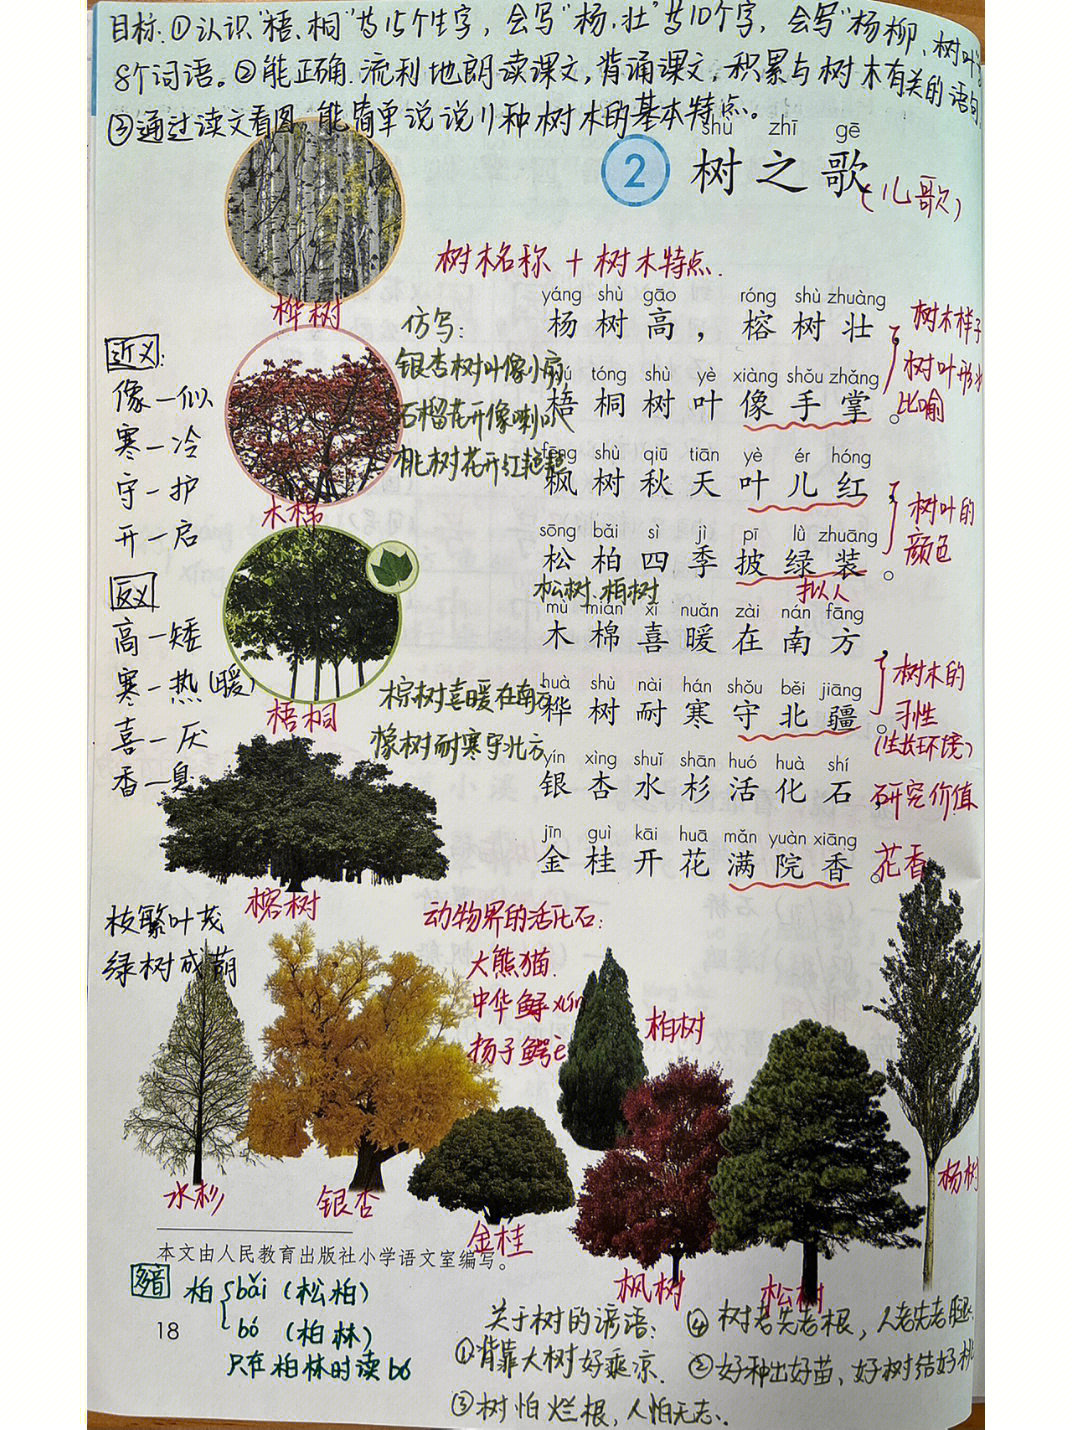 目标:①认识“梧、桐”等15个生字，会写“杨、壮”等10个字，会写“杨柳、树叶”等
8个词语。②能正确、流利地朗读课文，背诵课文，积累与树木有关的语句。
③通过读文看图，能简单说说11种树木的基本特点。
shù zhī gē
2 树之歌(儿歌)
树木名称 + 树木特点.
桦树
木棉
梧桐
榕树
近义:
像—似
寒—冷
守—护
开—启
反义
高—矮
寒—热(暖)
喜—厌
香—臭
枝繁叶茂
绿树成荫
仿写:
银杏树叶像小扇
石榴花开像喇叭
桃树花开红艳艳
棕树喜暖在南方
橡树耐寒守北方
yáng shù gāo róng shù zhuàng
杨树高，榕树壮
wú tóng shù yè xiàng shǒu zhǎng
梧桐树叶像手掌。
fēng shù qiū tiān yè ér hóng
枫树秋天叶儿红
sōng bǎi sì jì pī lǜ zhuāng
松柏四季披绿装。
松树、柏树
拟人
mù mián xǐ nuǎn zài nán fāng
木棉喜暖在南方
huà shù nài hán shǒu běi jiāng
桦树耐寒守北疆。
yín xìng shuǐ shān huó huà shí
银杏水杉活化石
jīn guì kāi huā mǎn yuàn xiāng
金桂开花满院香。
树木样子
树叶形状
比喻
树叶的
颜色
树木的
习性
(生长环境)
研究价值
花香
动物界的活化石:
大熊猫.
中华鲟xún
扬子鳄è
柏树
水杉
银杏
金桂
枫树
松树
杨树
本文由人民教育出版社小学语文室编写。
多音 柏 bǎi (松柏)
bó (柏林)
只在柏林时读bó
18
关于树的谚语:
①背靠大树好乘凉.
②好种出好苗、好树结好桃
③树怕烂根，人怕无志.
④树老先老根，人老先老腿.